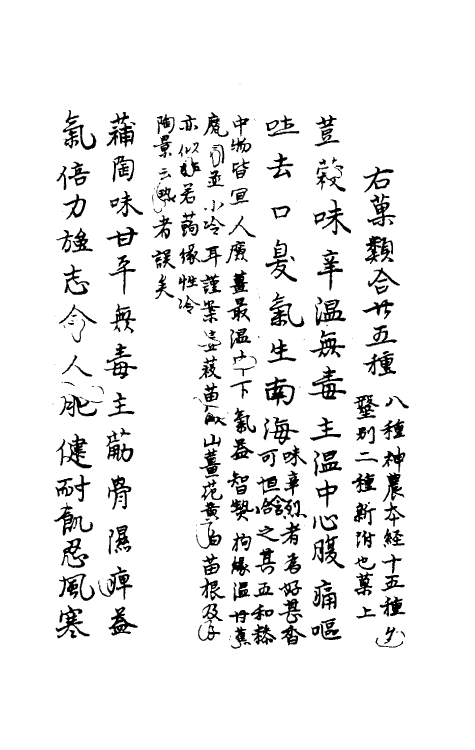 右菓類合廿五種
八種神農本経十五種夕
毉別二種新附也菓上
荳蔻味辛温無毒主温中心腹痛嘔
吐去口臭氣生南海
味辛烈者爲好甚香
可恒含之其五和糝
中物皆宜人廣薑最温中下氣益智熱枸緣温甘蕉
魔目並小冷耳謹案荳蔻苗似山薑花黄白苗根及子
亦似杜若蒟緣性冷
陶景云熱者誤矣
蒱陶味甘平無毒主筋骨濕痺益
氣倍力強志令人肥健耐飢忍風寒